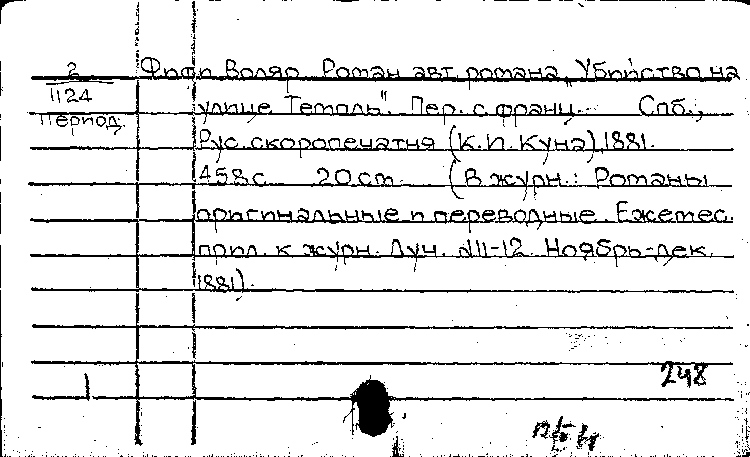 2
1124
Период.
Фифи Воляр. Роман авт. романа „Убийство на
улице Темпль". Пер. с франц. Спб.,
Рус. скоропечатня (К. И. Куна), 1881.
458 с 20 см. (В журн.: Романы
оригинальные и переводные. Ежемес.
прил. к журн. Луч. №11-12. Ноябрь-дек.
1881).
1
248